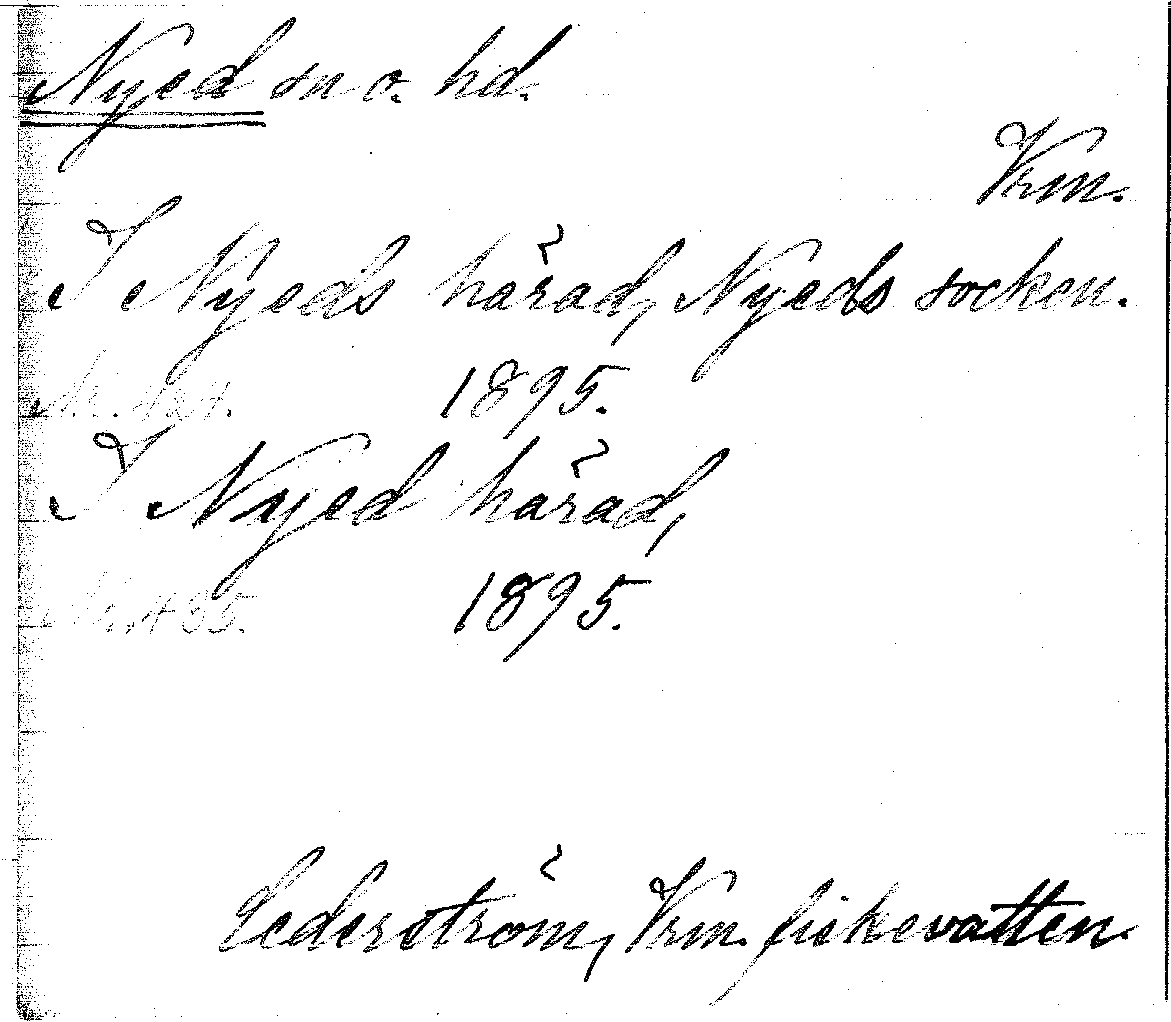 Nyed sn o. hd.
Vrm.
I Nyeds härad, Nyeds socken.
1895.
I Nyed härad,
1895.
Cederström, Vrm. fiskevatten.